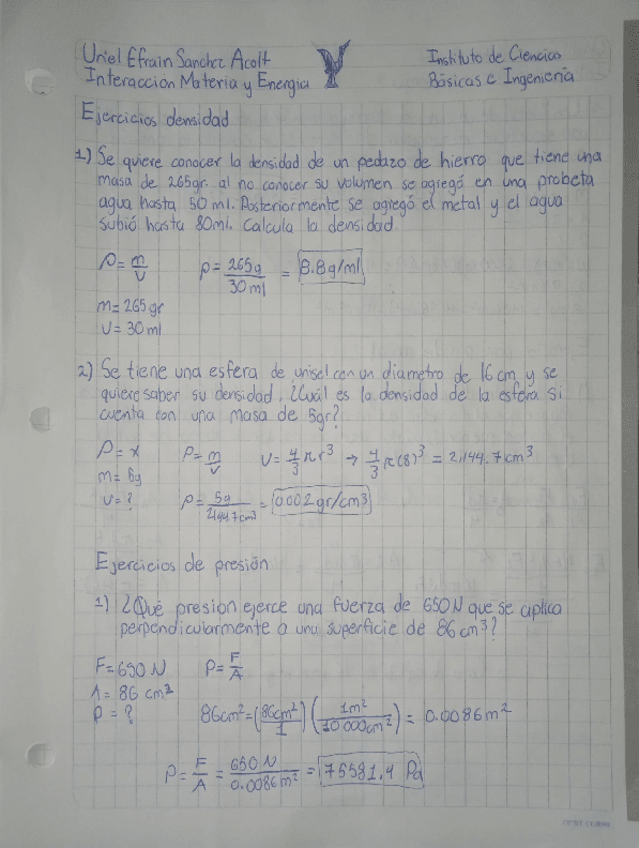 Uriel Efrain Sanchez Acolt
Interacción Materia y Energia
Instituto de Ciencias
Básicas e Ingeniería
Ejercicios densidad
1) Se quiere conocer la densidad de un pedazo de hierro que tiene una
masa de 265gr. al no conocer su volumen se agregó en una probeta
agua hasta 50 ml. Posteriormente se agregó el metal y el agua
subió hasta 80ml. Calcula la densidad.
ρ = m/v ρ = 265g/30 ml = 8.8g/ml
m= 265 gr
v = 30 ml
2) Se tiene una esfera de unisel con un diametro de 16 cm y se
quiere saber su densidad. ¿Cuál es la densidad de la esfera si
cuenta con una masa de 5gr?
ρ = x ρ = m/v v = 4/3 π r³ → 4/3 π(8)³ = 2,144.7 cm³
m= 5g
v = ? ρ = 5g/2144.7cm³ = 0.002 gr/cm³
Ejercicios de presión
1) ¿Qué presion ejerce una fuerza de 650 N que se aplica
perpendicularmente a una superficie de 86 cm³?
F = 650 N P = F/A
A = 86 cm²
P = ? 86cm² = (86cm²/1) (1m²/10 000cm²) = 0.0086 m²
P = F/A = 650 N/0.0086 m² = 75581.4 Pa